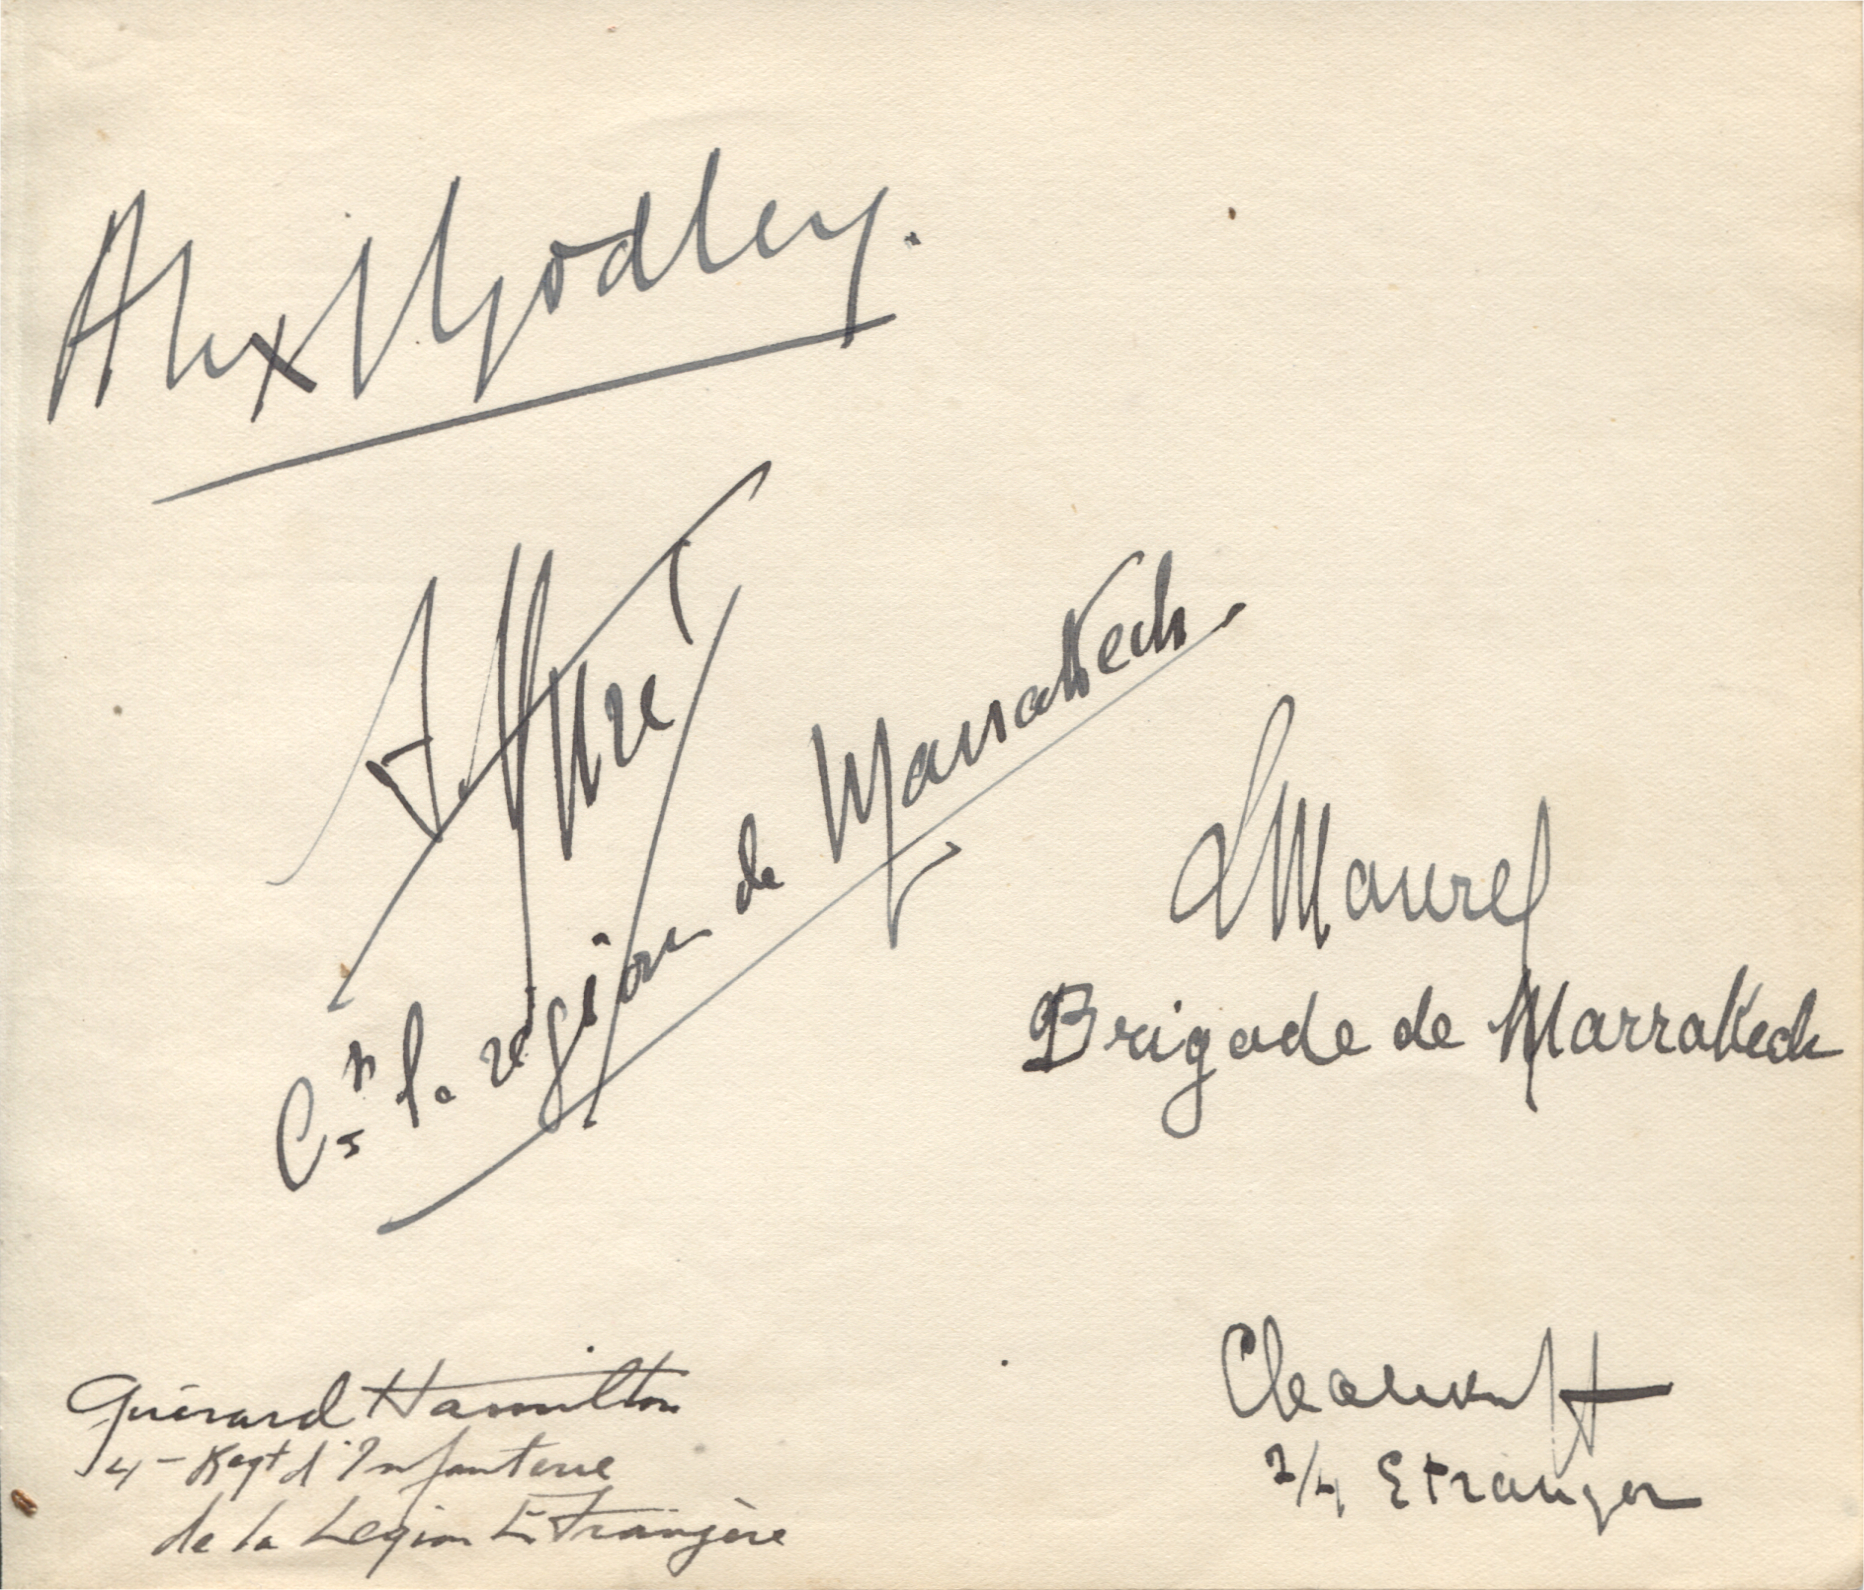 Alex Godley.
A. Huré
Ct la région de Marrakech
Maurel
Brigade de Marrakech
Guérard Hamilton
4 - Regt d'Infanterie
de la Légion Etrangère
2/4 Etranger